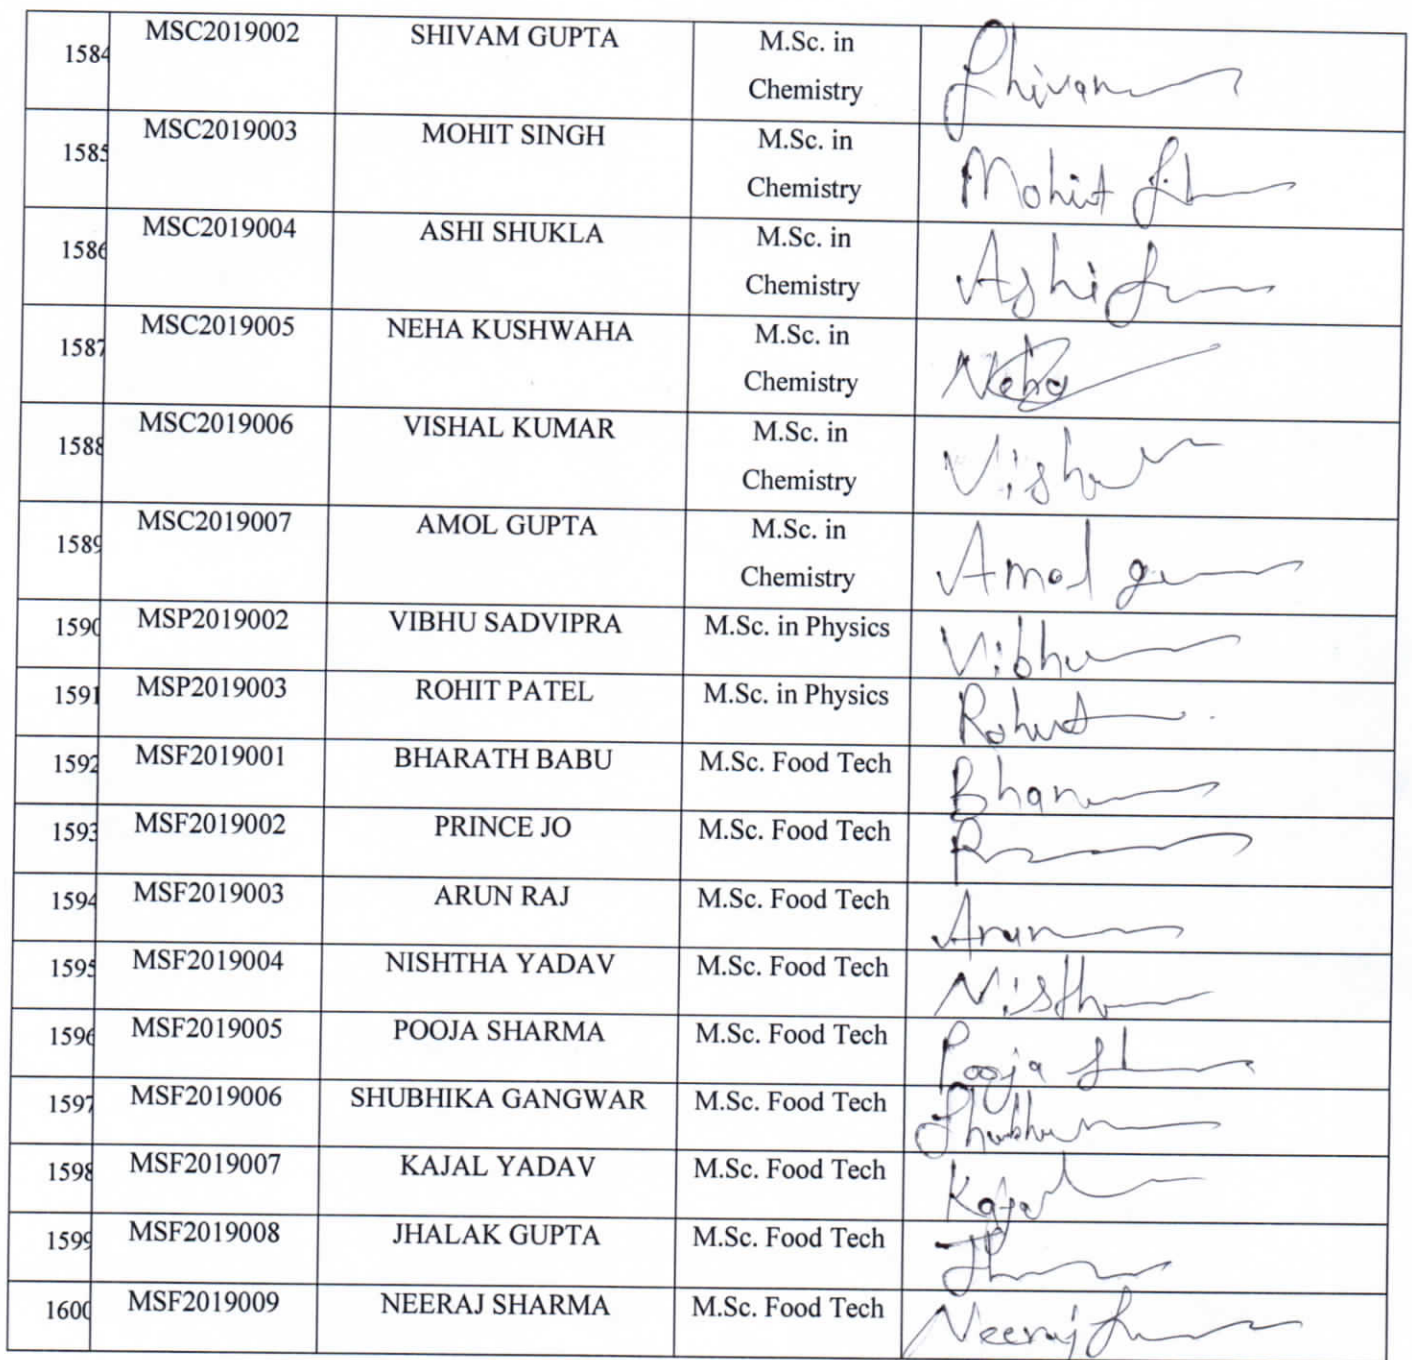 1584 MSC2019002 SHIVAM GUPTA M.Sc. in
Chemistry Shivam
1585 MSC2019003 MOHIT SINGH M.Sc. in
Chemistry Mohit
1586 MSC2019004 ASHI SHUKLA M.Sc. in
Chemistry Ashi
1587 MSC2019005 NEHA KUSHWAHA M.Sc. in
Chemistry Neha
1588 MSC2019006 VISHAL KUMAR M.Sc. in
Chemistry
1589 MSC2019007 AMOL GUPTA M.Sc. in
Chemistry Amol
1590 MSP2019002 VIBHU SADVIPRA M.Sc. in Physics Vibhu
1591 MSP2019003 ROHIT PATEL M.Sc. in Physics Rohit
1592 MSF2019001 BHARATH BABU M.Sc. Food Tech
1593 MSF2019002 PRINCE JO M.Sc. Food Tech
1594 MSF2019003 ARUN RAJ M.Sc. Food Tech Arun
1595 MSF2019004 NISHTHA YADAV M.Sc. Food Tech
1596 MSF2019005 POOJA SHARMA M.Sc. Food Tech Pooja
1597 MSF2019006 SHUBHIKA GANGWAR M.Sc. Food Tech
1598 MSF2019007 KAJAL YADAV M.Sc. Food Tech Kajal
1599 MSF2019008 JHALAK GUPTA M.Sc. Food Tech
1600 MSF2019009 NEERAJ SHARMA M.Sc. Food Tech Neeraj